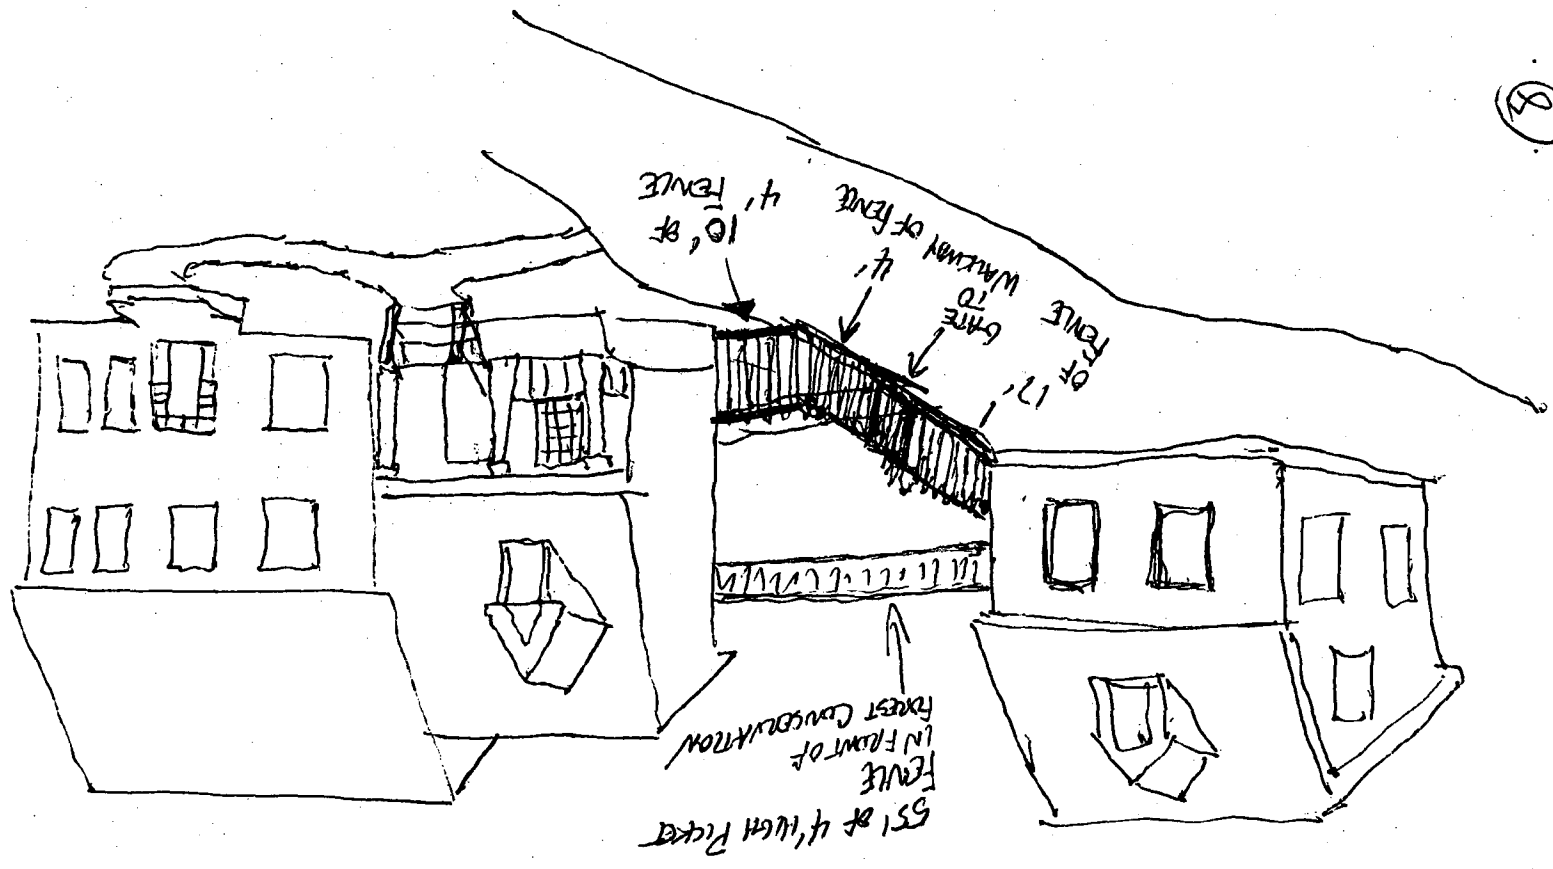 55' OF 4' HIGH PICKET
FENCE
IN FRONT OF
FOREST CONSERVATION
12'
OF
FENCE
GATE
TO
WALKWAY
4'
OF FENCE
10' OF
4' FENCE
8